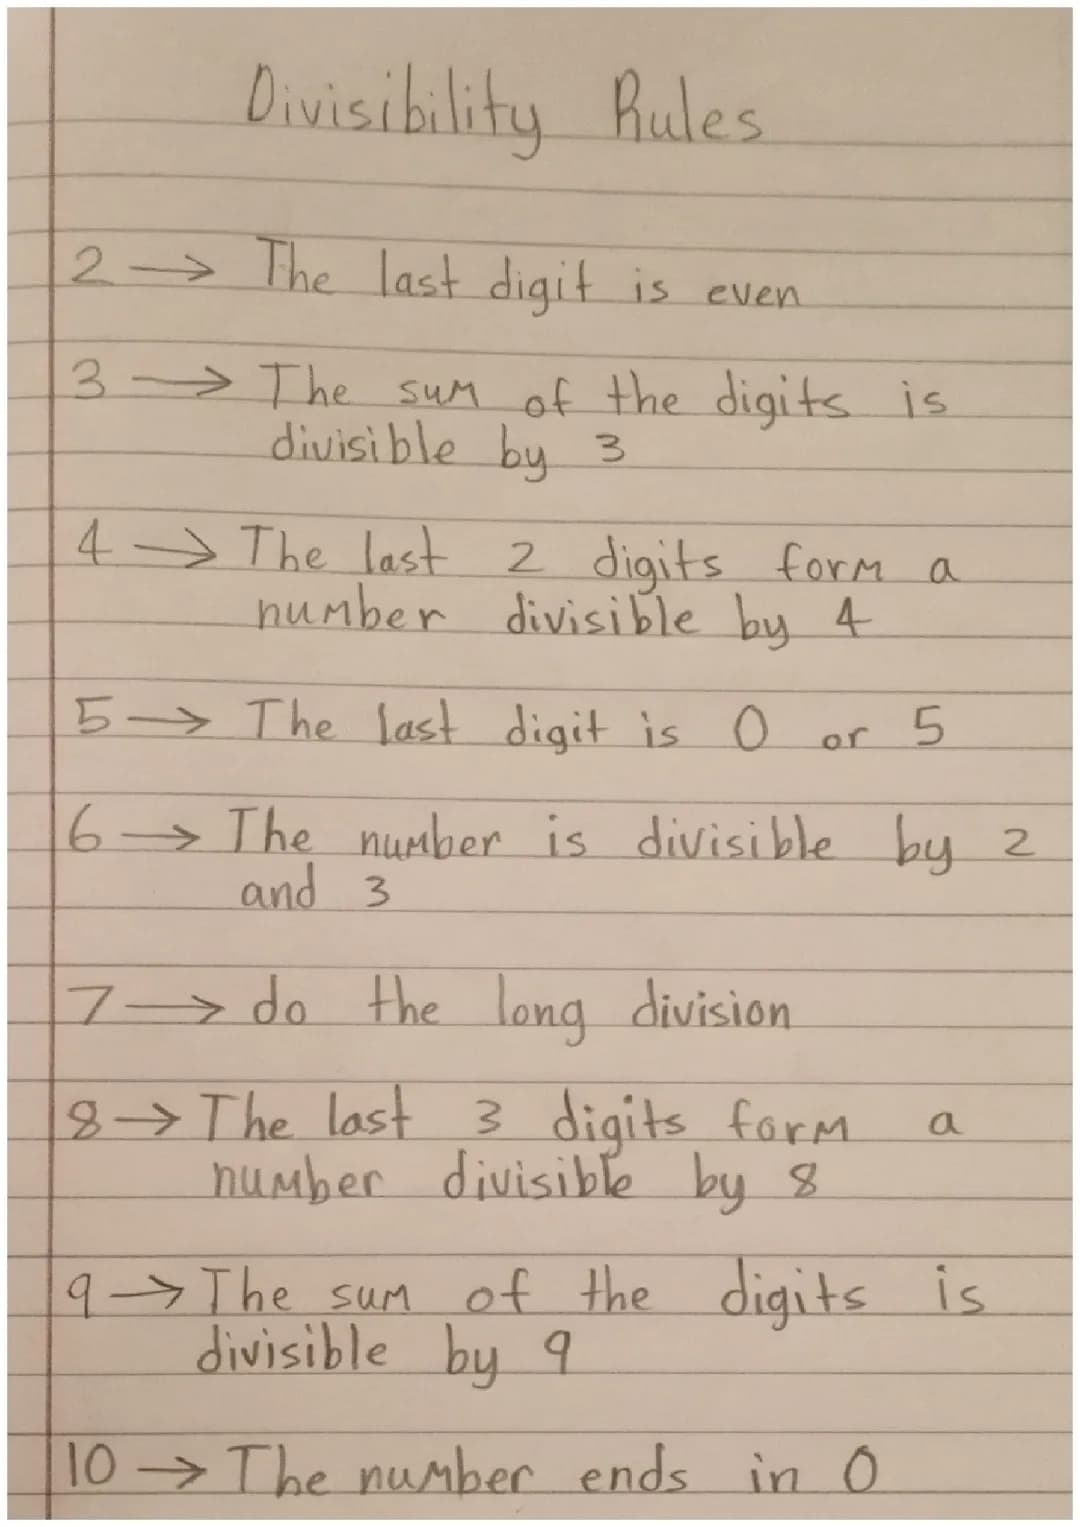 Divisibility Rules
2 → The last digit is even
3 → The sum of the digits is
divisible by 3
4 → The last 2 digits form a
number divisible by 4
5 → The last digit is 0 or 5
6 → The number is divisible by 2
and 3
7 → do the long division
8 → The last 3 digits form a
number divisible by 8
9 → The sum of the digits is
divisible by 9
10 → The number ends in 0